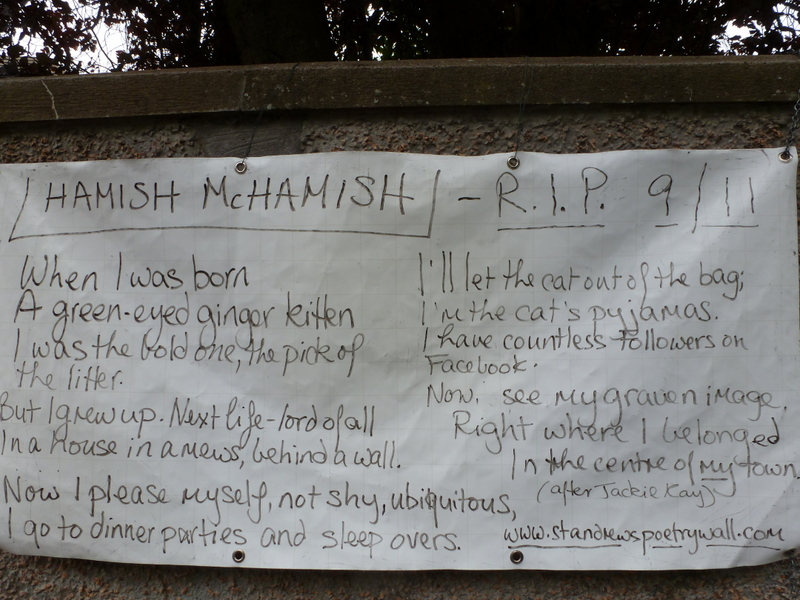 HAMISH McHAMISH - R.I.P. 9/11
When I was born
A green-eyed ginger kitten
I was the bold one, the pick of
the litter.
But I grew up. Next life-lord of all
In a house in a mews, behind a wall.
Now I please myself, not shy, ubiquitous,
I go to dinner parties and sleep overs.
I'll let the cat out of the bag;
I'm the cat's pyjamas.
I have countless followers on
Facebook.
Now, see my graven image,
Right where I belonged
In the centre of my town.
(after Jackie Kay)
www.standrewspoetrywall.com